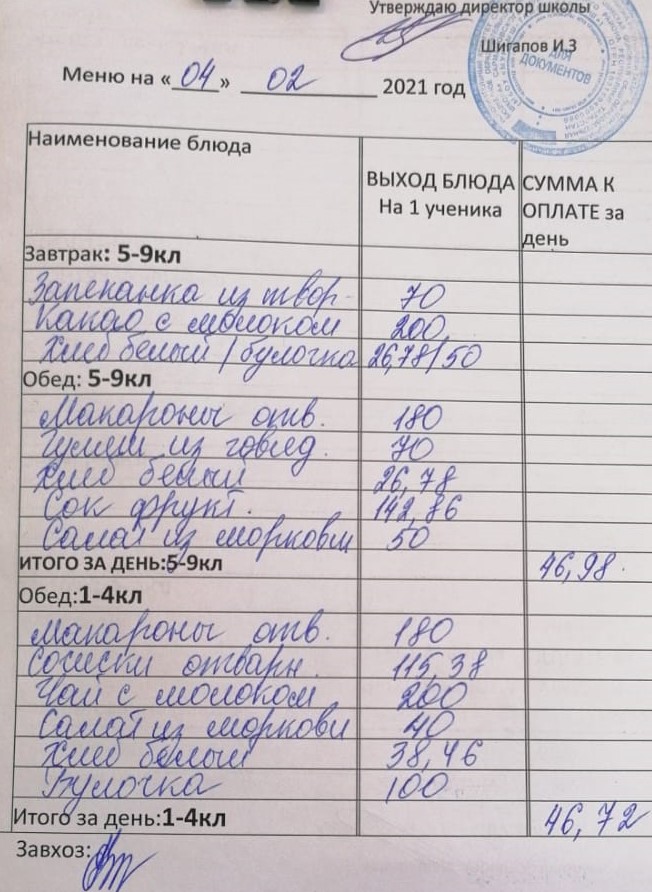 Утверждаю директор школы
Шигапов И.З
ДЛЯ
ДОКУМЕНТОВ
Меню на «04» 02 2021 год
Наименование блюда
ВЫХОД БЛЮДА
На 1 ученика
СУММА К
ОПЛАТЕ за
день
Завтрак: 5-9кл
Запеканка из твор- 70
Какао с молоком 200
Хлеб белый / булочка 26,78/50
Обед: 5-9кл
Макароны отв. 180
Гуляш из говяд. 70
Хлеб белый 26,78
Сок фрукт. 142,86
Салат из моркови 50
ИТОГО ЗА ДЕНЬ:5-9кл 46,98.
Обед:1-4кл
Макароны отв. 180
Сосиски отварн. 115,38
Чай с молоком 200
Салат из моркови 40
Хлеб белый 38,46
Булочка 100
Итого за день:1-4кл 46,72
Завхоз: